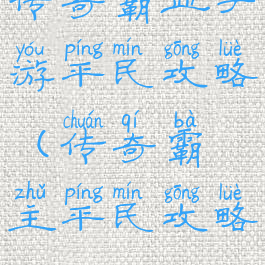 传奇霸业手
yóu píng mín gōng lüè
游平民攻略
chuán qí bà
（传奇霸
zhǔ píng mín gōng lüè
主平民攻略